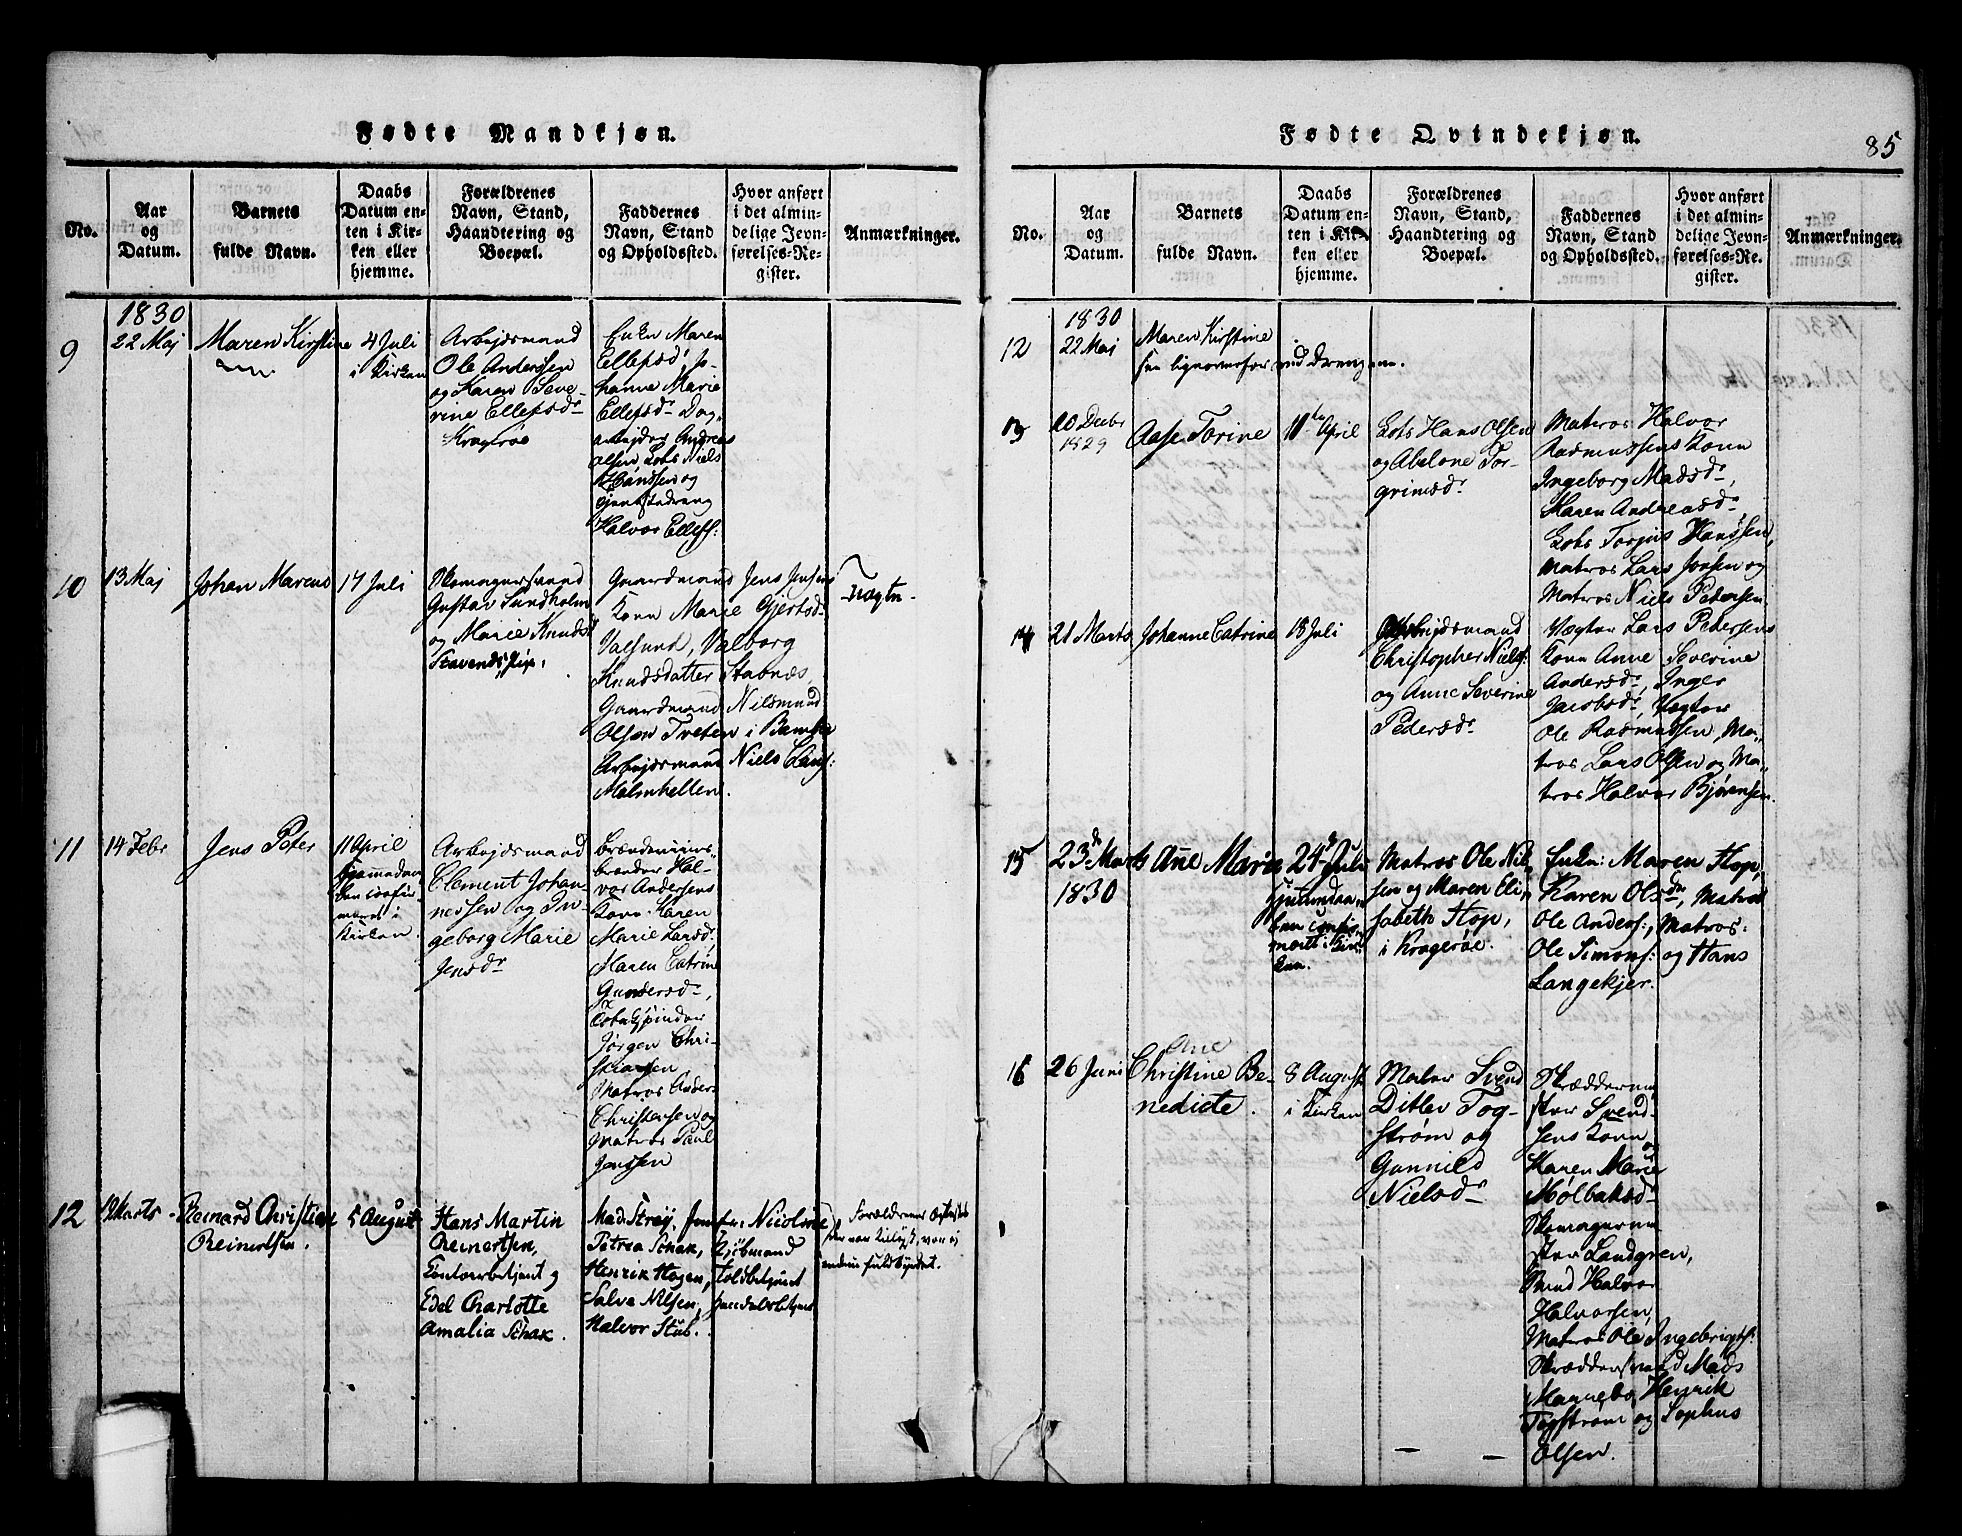 Fødte Mandkjøn.
No.
Aar
og
Datum.
Barnets
fulde Navn.
Daabs
Datum en-
ten i Kir-
ken eller
hjemme.
Forældrenes
Navn, Stand,
Haandtering og
Boepæl.
Faddernes
Navn, Stand
og Opholdssted.
Hvor anført
i det almin-
delige Jevn-
førelses-Re-
gister.
Anmærkninger.
1830
9
22 Maj
Maren Kirstine
4 Juli
i Kirken
Arbejdsmand
Ole Andersen
og Karen Seve-
rine Ellefsdr
Kragerøe
Enken Maren
Ellefsdr, Jo-
hanne Marie
Ellefsdr Dag-
arbejder Andreas
Olsen, Lots Niels
Hanssen og
Halvor Ellefs:
10
13 Maj
Johan Marcus
17 Juli
Skomagersvend
Gustav Sundholm
og Marie Knudsd
Gaardmand Jens Jensens
Kone Marie Gjertsd.
Valsund, Valborg
Knudsdatter Stabnæs,
Gaardmand Nilsmund
Olsen Tveten i Bamble
Arbejdsmand Niels Claus:
Malmhellen.
Uægte.
11
14 Febr
Jens Peter
11 April
Kirken.
Arbejdsmand
Clement Johan-
nessen og In-
geborg Marie
Jensdr
Brændeviins-
brænder Hal-
vor Andersens
Kone Karen
Marie Larsd.
Maren Catrine
Gundersdr,
Jørgen Chri-
stiansen
Matros Anders
Christensen og
Matros Paul
Jenssen
12
Marts
Reinard Christian
Reinertsen.
5 August
Hans Martin
Reinertsen,
Contoirbetjent og
Edel Charlotte
Amalia Schak.
Mad Strøy, Jomfru: Nicoline
Petrea Schak, Kjøbmand
Henrik Hagen, Toldbetjent
Salve Nilsen, Handelsbetjent
Halvor Stub.
Forældrenes Ægteskab
endnu fuldbyrdet.
Fødte Qvindekjøn.
85
No.
Aar
og
Datum.
Barnets
fulde Navn.
Daabs
Datum en-
ten i Kir-
ken eller
hjemme.
Forældrenes
Navn, Stand,
Haandtering og
Boepæl.
Faddernes
Navn, Stand
og Opholdssted.
Hvor anført
i det almin-
delige Jevn-
førelses-Re-
gister.
Anmærkninger.
1830
12
22 Maj
Maren Kirstine
see ligeoverfor ved Drengene.
13
20 Decbr
1829
Aase Torine
11te April
Lots Hans Olsen
og Abelone Tor-
grimsdr
Matros Halvor
Rasmussens Kone
Ingeborg Madsdr,
Karen Andreasdr,
Lots Torjus Hanssen,
Matros Lars Joasen og
Matros Niels Pedersen.
14
21 Marts
Johanne Catrine
18 Juli
Arbejdsmand
Christopher Niels:
og Anne Severine
Pedersdr
Vægter Lars Pedersens
Kone Anne Severine
Andersdr, Inger
Jacobsdr, Vægter
Ole Rasmussen, Ma-
tros Lars Olsen og Ma-
tros Halvor Bjørensen.
15
23de Marts
1830
Ane Marie
24de Juli
hjemmedaa-
ben confir-
meret i Kir-
ken
Matros Ole Nil-
sen og Maren Eli-
sabeth Stop,
i Kragerøe.
Enken: Maren Stop,
Karen Olsdr, Matros
Ole Anders:, Matros:
Ole Simons: og Hans
Langekjer.
16
26 Juni
Ane
Christine Be-
nedicte.
8 August
i Kirken
Maler Svend
Ditlev Tog-
strøm og
Gunnild
Nielsdr
Skrædderme-
ster Svend-
sens Kone og
Karen Marie
Mølbaksdr
Skomagerme-
ster Landgren,
Svend Halvor
Halvorsen,
Matros Ole Ingebrigts:
Skræddersvend Mads
Mannebo, Henrik
Togstrøm og Sophus
Olsen.